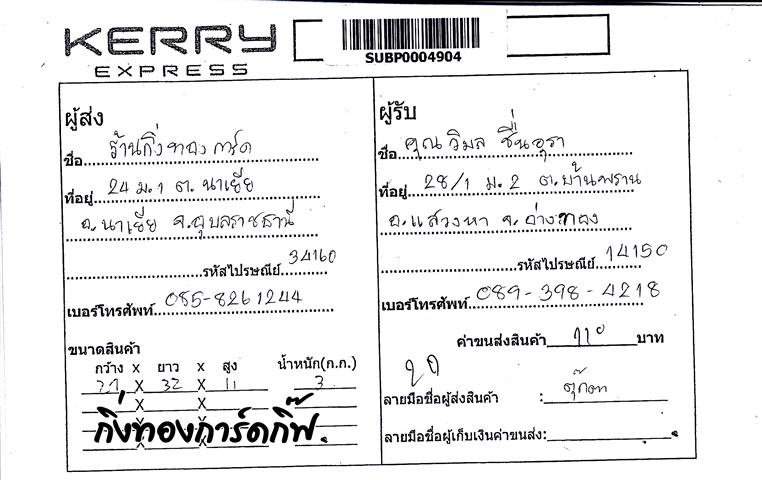 KERRY
EXPRESS
SUBP0004904
ผู้ส่ง
ชื่อ ร้านกิ่งทองการ์ด
ที่อยู่ 24 ม.1 ต.นาเยีย
อ.นาเยีย จ.อุบลราชธานี
รหัสไปรษณีย์ 34160
เบอร์โทรศัพท์ 085-8261244
ขนาดสินค้า
กว้าง x ยาว x สูง น้ำหนัก(ก.ก.)
X 32 X 11 3
X X
X X
กิ่งทองการ์ดกิ๊ฟ.
ผู้รับ
ชื่อ คุณวิมล ชื่นอุรา
ที่อยู่ 28/1 ม.2 ต.บ้านพราน
อ.แสวงหา จ.อ่างทอง
รหัสไปรษณีย์ 14150
เบอร์โทรศัพท์ 089-398-4218
ค่าขนส่งสินค้า 110 บาท
ลายมือชื่อผู้ส่งสินค้า : ตุ๊กตา
ลายมือชื่อผู้เก็บเงินค่าขนส่ง: